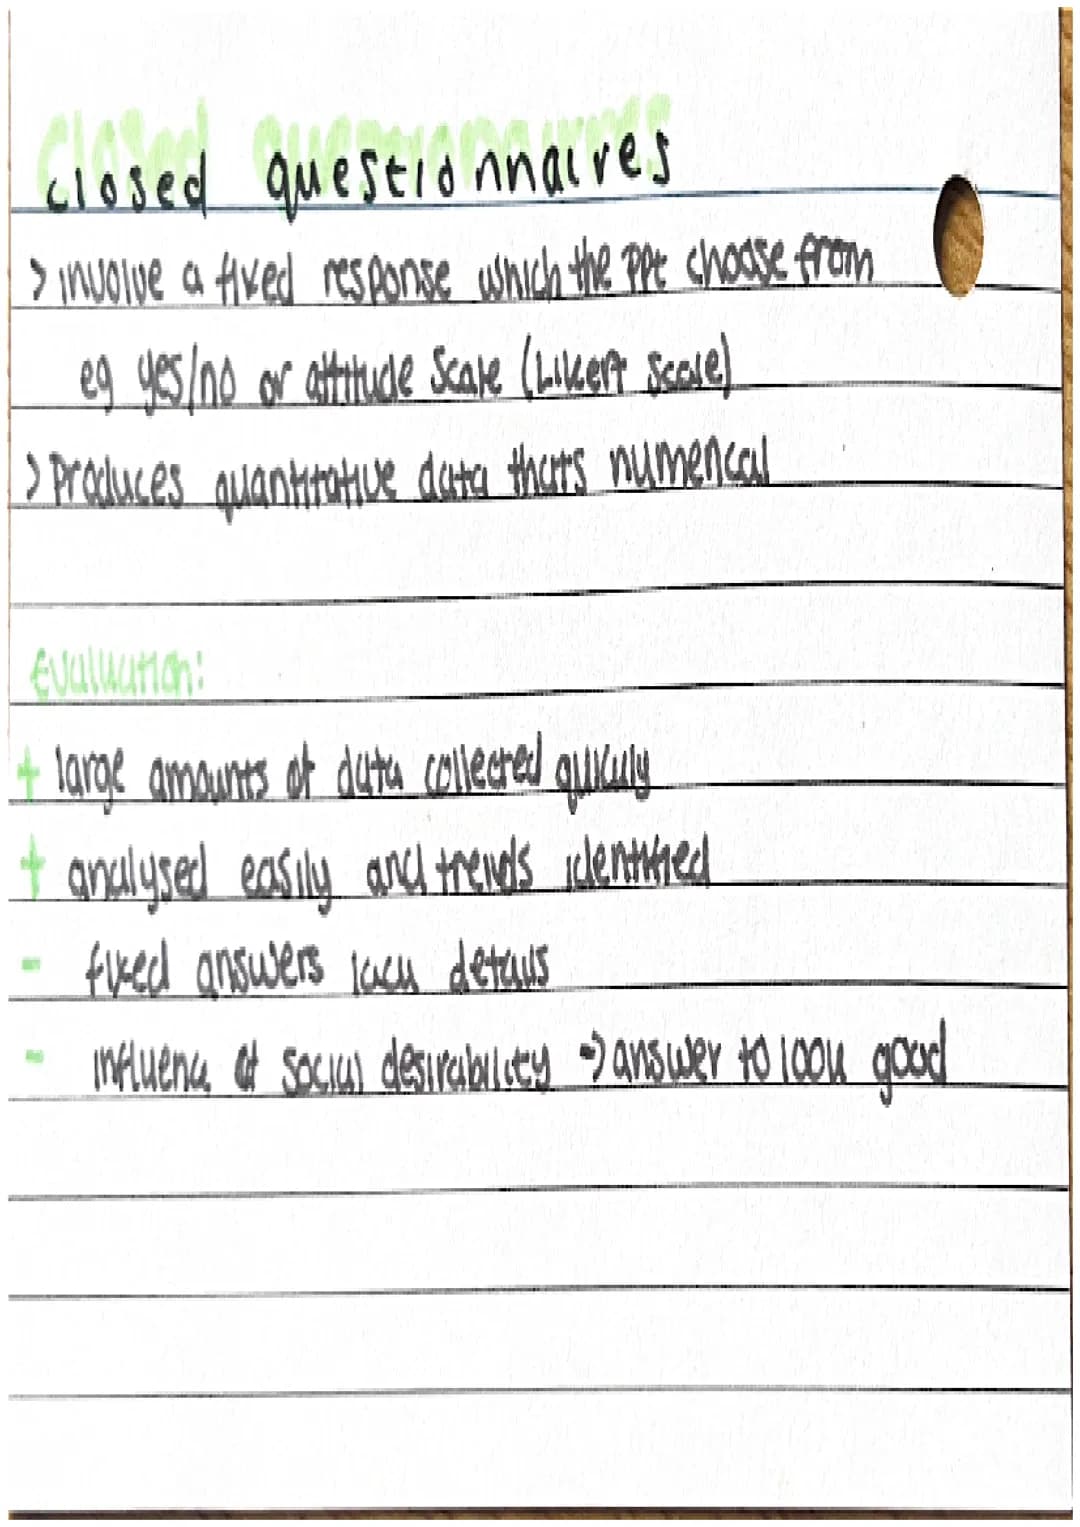 Closed questionnaires
> involve a fixed response which the ppt choose from
eg yes/no or attitude scale (Likert Scale)
> Produces quantitative data that's numerical
Evaluation:
+ large amounts of data collected quickly
+ analysed easily and trends identified
- fixed answers lack details
- influence of social desirability → answer to look good